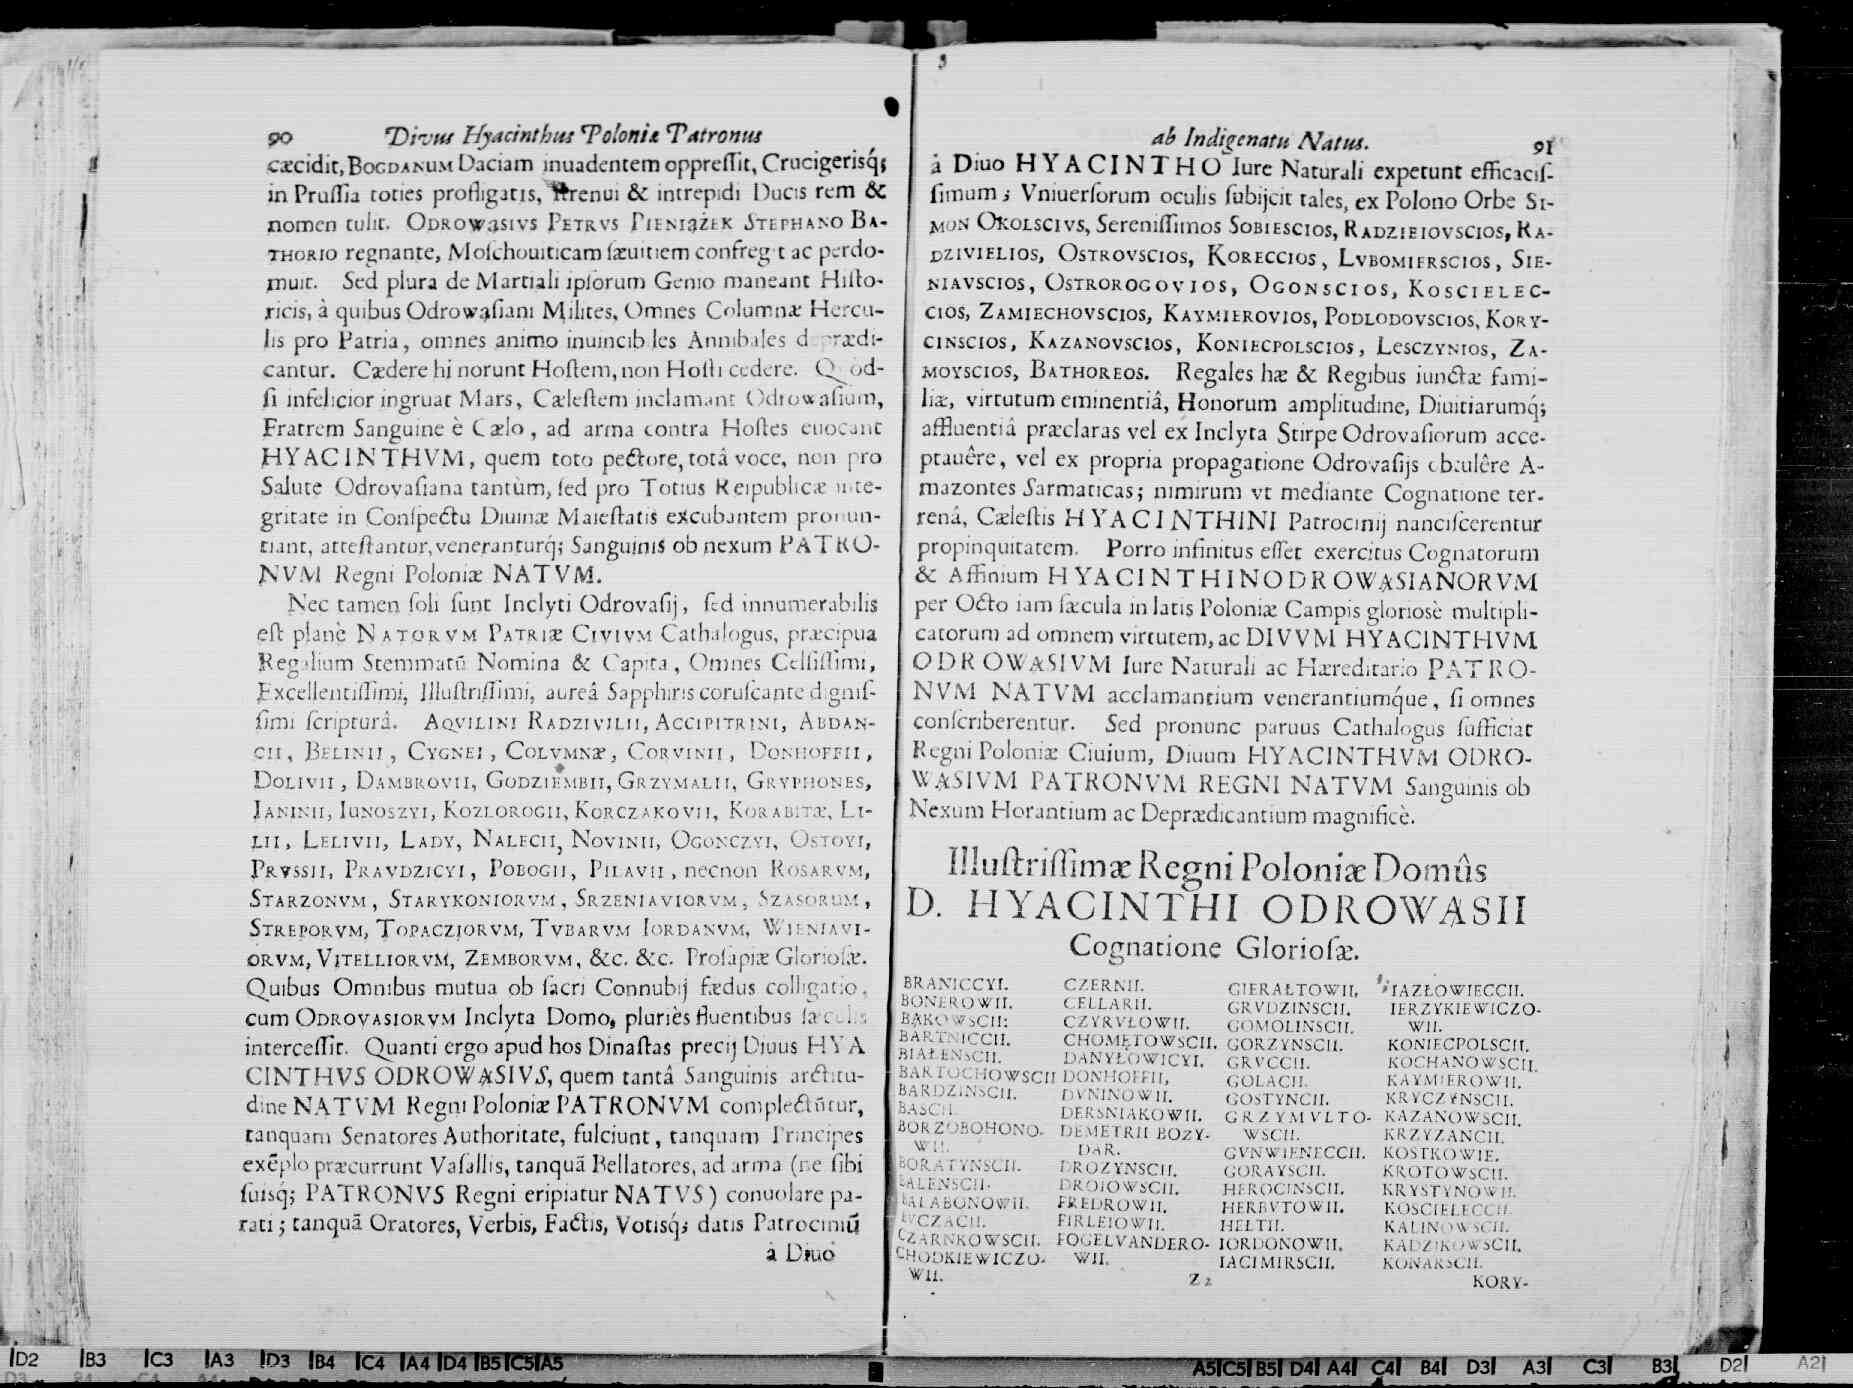 90 Divus Hyacinthus Poloniæ Patronus
cæcidit, BOGDANUM Daciam inuadentem oppreſſit, Crucigerisq́;
in Pruſſia toties profligatis, ſtrenui & intrepidi Ducis rem &
nomen tulit. ODROWąSIVS PETRVS PIENIąŻEK STEPHANO BA-
THORIO regnante, Moſchouiticam ſæuitiem confregit ac perdo-
muit. Sed plura de Martiali ipſorum Genio maneant Hiſto-
ricis, à quibus Odrowąſiani Milites, Omnes Columnæ Hercu-
lis pro Patria, omnes animo inuincibiles Annibales deprædi-
cantur. Cædere hi norunt Hoſtem, non Hoſti cedere. Quòd-
ſi infelicior ingruat Mars, Cæleſtem inclamant Odrowaſium,
Fratrem Sanguine è Cælo, ad arma contra Hoſtes euocant
HYACINTHVM, quem toto pectore, totâ voce, non pro
Salute Odrovaſiana tantùm, ſed pro Totius Reipublicæ inte-
gritate in Conſpectu Diuinæ Maieſtatis excubantem pronun-
tiant, atteſtantur, veneranturq́; Sanguinis ob nexum PATRO-
NVM Regni Poloniæ NATVM.
Nec tamen ſoli ſunt Inclyti Odrovaſij, ſed innumerabilis
eſt planè NATORVM PATRIÆ CIVIVM Cathalogus, præcipua
Regalium Stemmatū Nomina & Capita, Omnes Celſiſſimi,
Excellentiſſimi, Illuſtriſſimi, aureâ Sapphiris coruſcante digniſ-
ſimi ſcripturâ. AQVILINI RADZIVILII, ACCIPITRINI, ABDAN-
CII, BELINII, CYGNEI, COLVMNÆ, CORVINII, DONHOFFII,
DOLIVII, DAMBROVII, GODZIEMBII, GRZYMALII, GRYPHONES,
JANINII, IUNOSZYI, KOZLOROGII, KORCZAKOVII, KORABITÆ, LI-
LII, LELIVII, LADY, NALECII, NOVINII, OGONCZYI, OSTOYI,
PRVSSII, PRAVDZICYI, POBOGII, PILAVII, necnon ROSARVM,
STARZONVM, STARYKONIORVM, SRZENIAVIORVM, SZASORUM,
STREPORVM, TOPACZIORVM, TVBARVM IORDANVM, WIENIAVI-
ORVM, VITELLIORVM, ZEMBORVM, &c. &c. Proſapiæ Glorioſæ.
Quibus Omnibus mutua ob ſacri Connubij fædus colligatio,
cum ODROVASIORVM Inclyta Domo, pluriès fluentibus ſæculis
interceſſit. Quanti ergo apud hos Dinaſtas precij Diuus HYA
CINTHVS ODROWąSIVS, quem tantâ Sanguinis arctitu-
dine NATVM Regni Poloniæ PATRONVM complectūtur,
tanquam Senatores Authoritate, fulciunt, tanquam Principes
exēplo præcurrunt Vaſallis, tanquā Bellatores, ad arma (ne ſibi
ſuisq́; PATRONVS Regni eripiatur NATVS) conuolare pa-
rati; tanquā Oratores, Verbis, Factis, Votisq́; datis Patrociniū
à Diuo
ab Indigenatu Natus. 91
à Diuo HYACINTHO Iure Naturali expetunt efficaciſ-
ſimum; Vniuerſorum oculis ſubijcit tales, ex Polono Orbe SI-
MON OKOLSCIVS, Sereniſſimos SOBIESCIOS, RADZIEIOVSCIOS, RA-
DZIVIELIOS, OSTROVSCIOS, KORECCIOS, LVBOMIERSCIOS, SIE-
NIAVSCIOS, OSTROROGOVIOS, OGONSCIOS, KOSCIELEC-
CIOS, ZAMIECHOVSCIOS, KAYMIEROVIOS, PODLODOVSCIOS, KORY-
CINSCIOS, KAZANOVSCIOS, KONIECPOLSCIOS, LESCZYNIOS, ZA-
MOYSCIOS, BATHOREOS. Regales hæ & Regibus iunctæ fami-
liæ, virtutum eminentiâ, Honorum amplitudine, Diuitiarumq́;
affluentiâ præclaras vel ex Inclyta Stirpe Odrovaſiorum acce-
ptauêre, vel ex propria propagatione Odrovaſijs obtulêre A-
mazontes Sarmaticas; nimirum vt mediante Cognatione ter-
renâ, Cæleſtis HYACINTHINI Patrocinij nanciſcerentur
propinquitatem. Porro infinitus eſſet exercitus Cognatorum
& Affinium HYACINTHINODROWąSIANORVM
per Octo iam ſæcula in latis Poloniæ Campis glorioſè multipli-
catorum ad omnem virtutem, ac DIVVM HYACINTHVM
ODROWąSIVM Iure Naturali ac Hæreditario PATRO-
NVM NATVM acclamantium venerantiumq́ue, ſi omnes
conſcriberentur. Sed pronunc paruus Cathalogus ſufficiat
Regni Poloniæ Ciuium, Diuum HYACINTHVM ODRO-
WąSIVM PATRONVM REGNI NATVM Sanguinis ob
Nexum Horantium ac Deprædicantium magnificè.
Illuſtriſſimæ Regni Poloniæ Domûs
D. HYACINTHI ODROWąSII
Cognatione Glorioſæ.
BRANICCYI.
BONEROWII.
BąKOWSCII:
BARTNICCII.
BIAŁENSCII.
BARTOCHOWSCII
BARDZINSCII.
BASCII.
BORZOBOHONO-
WII.
BORATYNSCII.
BALENSCII.
BALABONOWII.
CZARNKOWSCII.
CHODKIEWICZO-
WII.
CZERNII.
CELLARII.
CZYRVŁOWII.
CHOMĘTOWSCII.
DANYŁOWICYI.
DONHOFFII,
DVNINOWII.
DERSNIAKOWII.
DEMETRII BOZY-
DAR.
DROZYNSCII.
DROIOWSCII.
FREDROWII.
FIRLEIOWII.
FOGELVANDERO-
WII.
GIERAŁTOWII.
GRVDZINSCII.
GOMOLINSCII.
GORZYNSCII.
GRVCCII.
GOLACII.
GOSTYNCII.
GRZYMVLTO-
WSCII.
GVNWIENECCII.
GORAYSCII.
HEROCINSCII.
HERBVTOWII.
HELTII.
IORDONOWII.
IACIMIRSCII.
IAZŁOWIECCII.
IERZYKIEWICZO-
WII.
KONIECPOLSCII.
KOCHANOWSCII.
KAYMIEROWII.
KRYCZYNSCII.
KAZANOWSCII.
KRZYZANCII.
KOSTKOWIE.
KROTOWSCII.
KRYSTYNOWII.
KOSCIELECCII.
KALINOWSCII.
KADZIKOWSCII.
KONARSCII.
Z 2 KORY-
D2 B3 C3 A3 D3 B4 C4 A4 D4 B5 C5 A5
A5 C5 B5 D4 A4 C4 B4 D3 A3 C3 B3 D2 A2